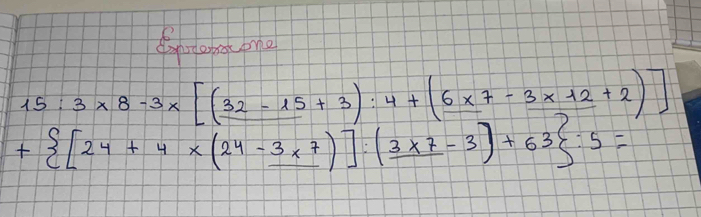 Espressione
15 : 3 x 8 - 3 x [(32 - 15 + 3) : 4 + (6 x 7 - 3 x 12 + 2)]
+ {[24 + 4 x (24 - 3 x 7)] : (3 x 7 - 3] + 63} : 5 =